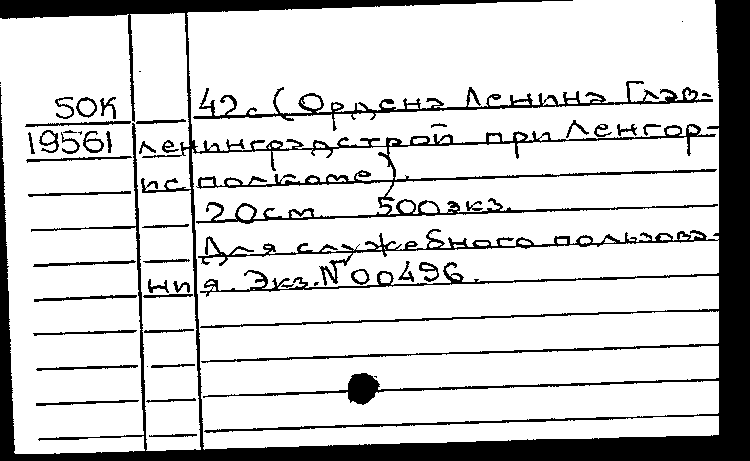 50К 42с (Ордена Ленина Глав-
19561 ленинградстрой при Ленгор-
исполкоме).
20см 500экз.
Для служебного пользова-
ния. Экз.N00496.